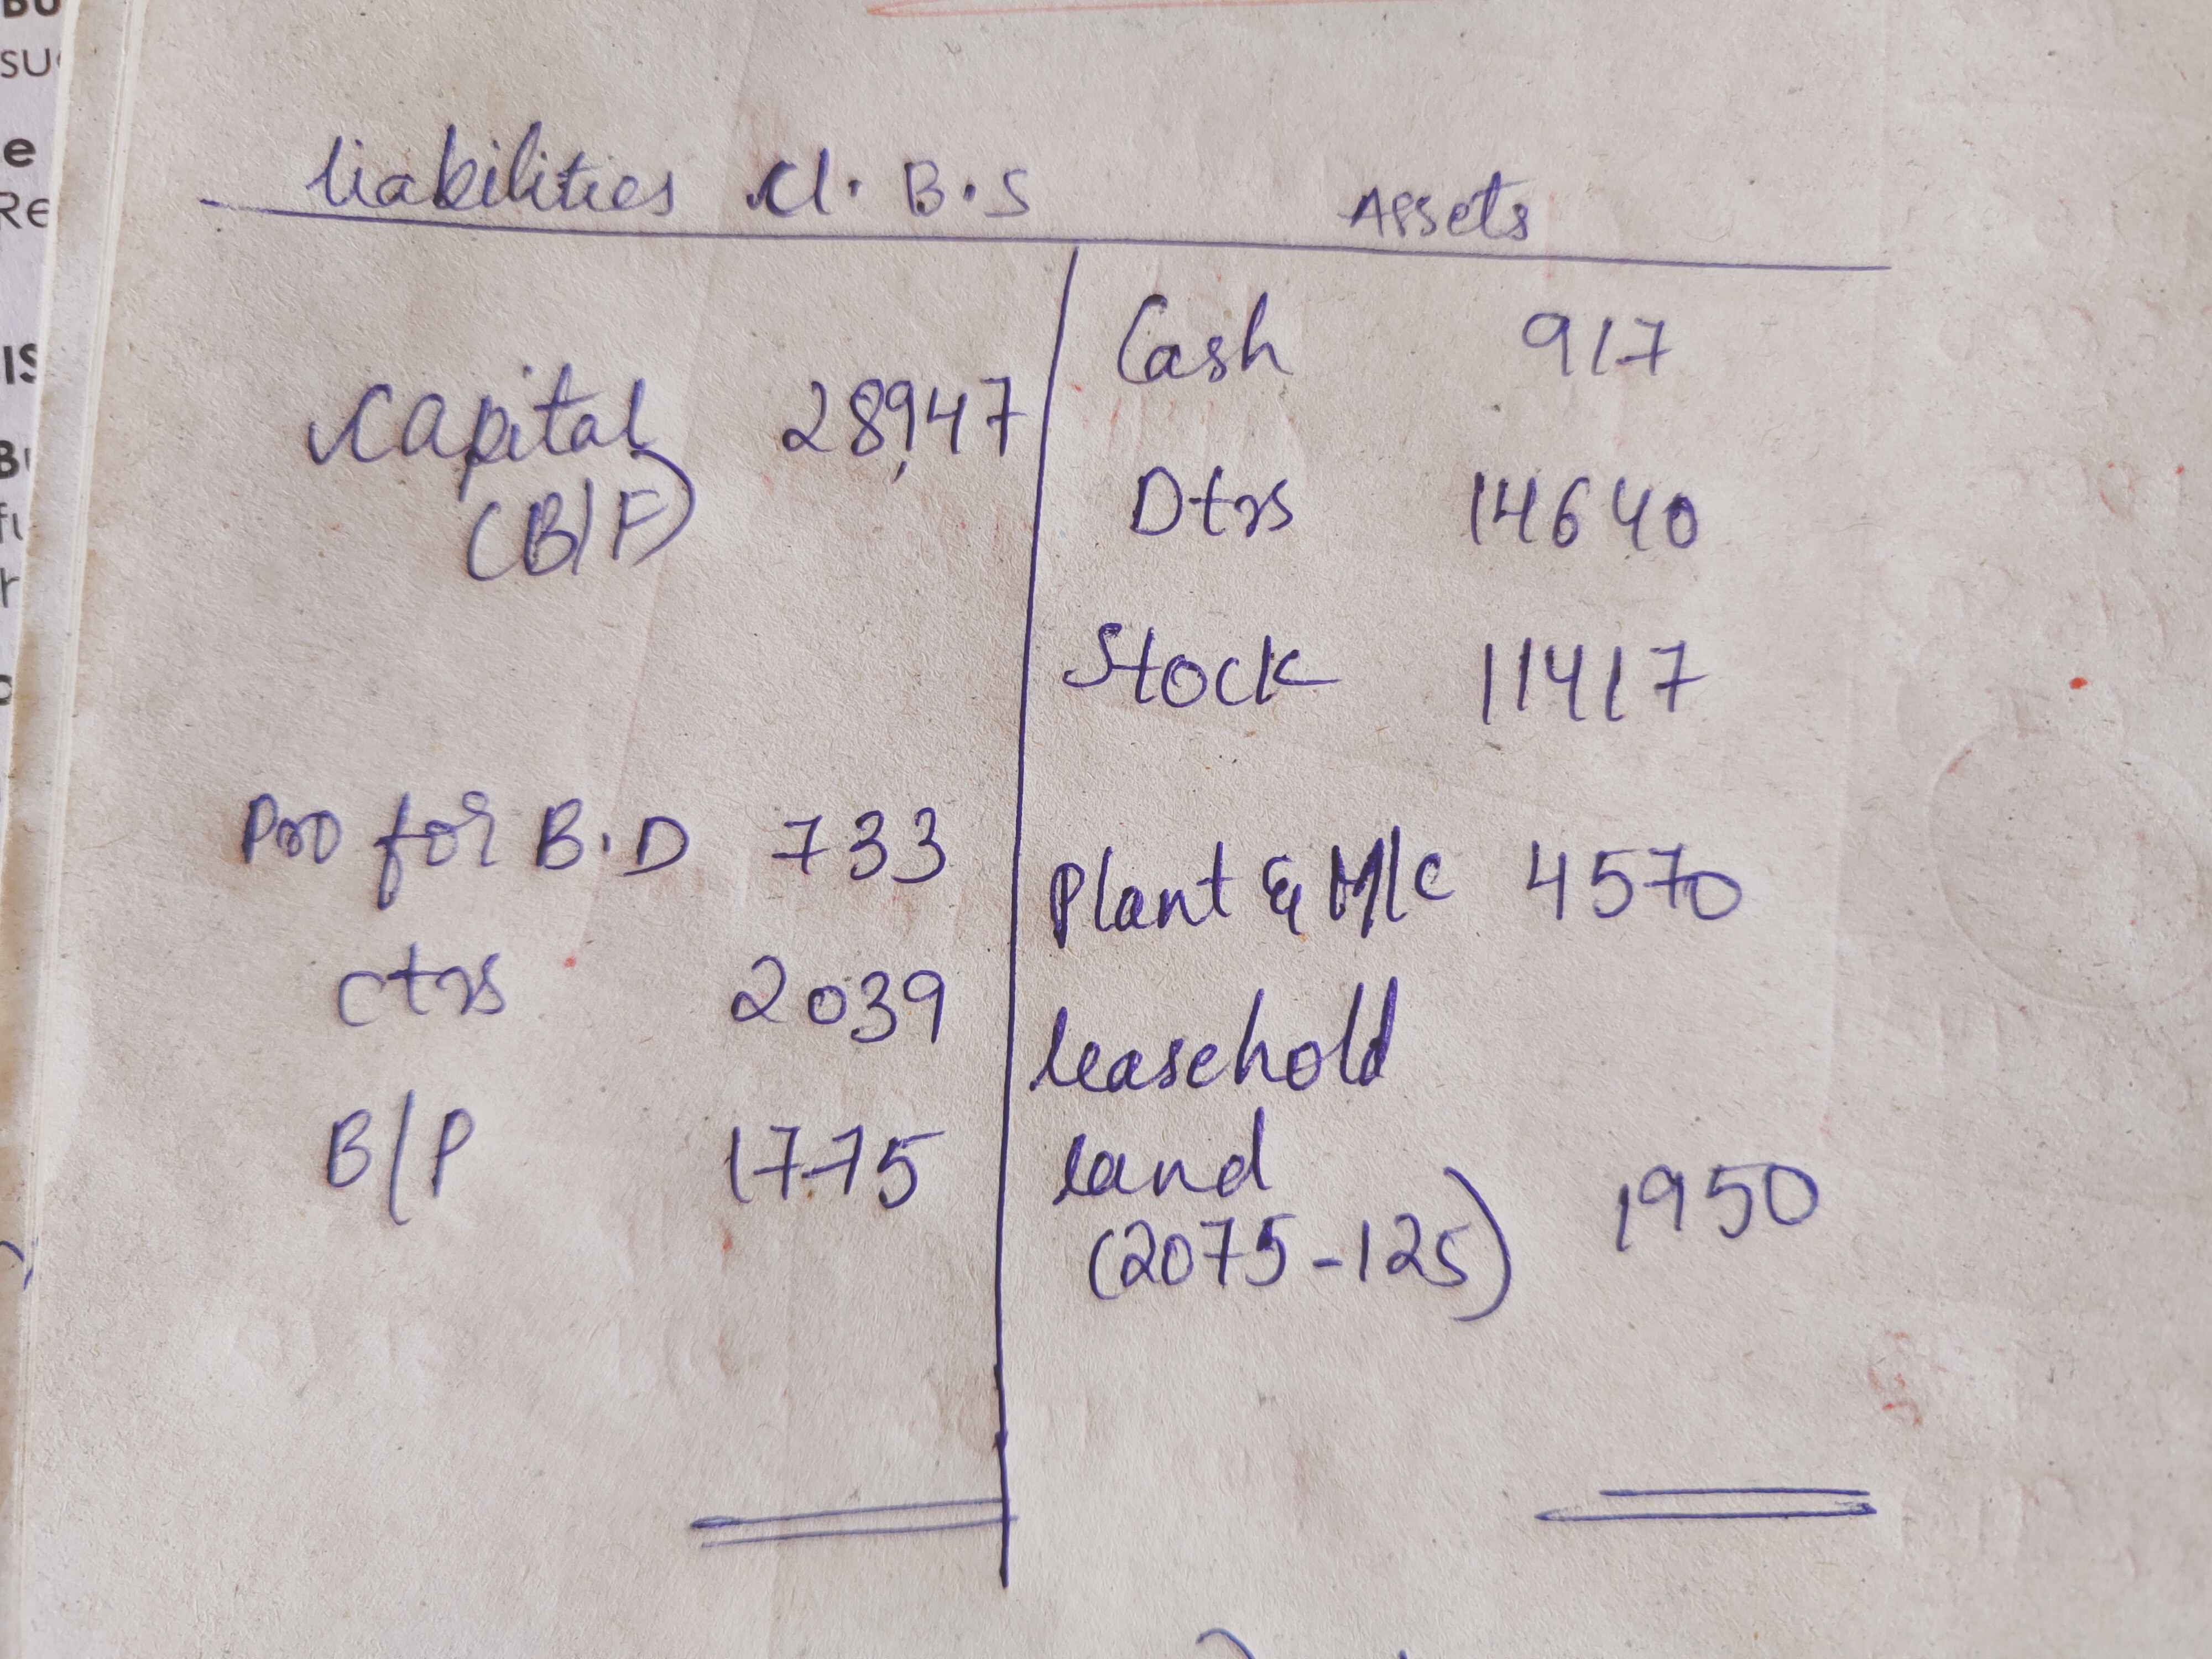 liabilities Cl. B.S Assets
Capital 28,947
(B/F)
Pro for B.D 733
Ctrs 2039
B/P 1775
Cash 917
Dtrs 14640
Stock 11417
Plant & M/C 4570
leasehold
land
(2075-125) 1950